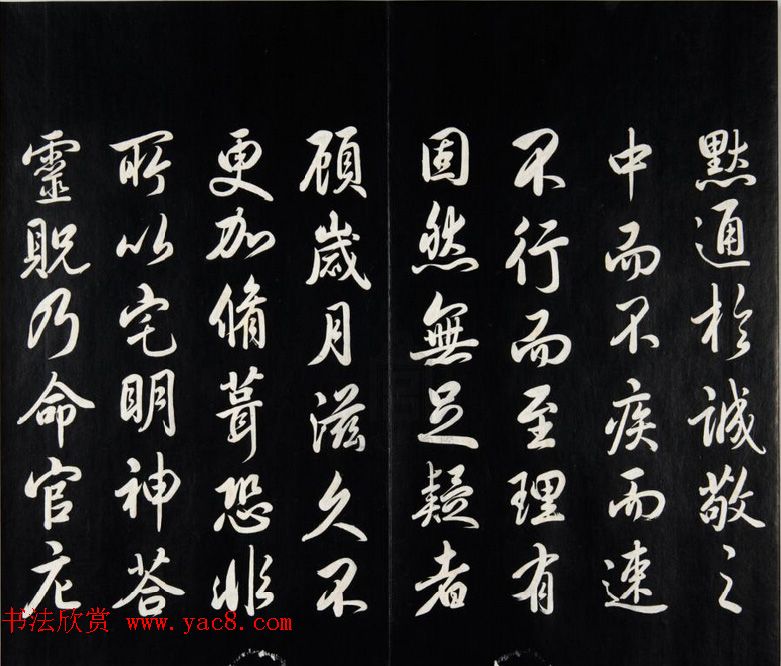 默通於誠敬之
中而不疾而速
不行而至理有
固然無足疑者
顧歲月滋久不
更加脩葺恐非
所以宅明神荅
靈貺乃命官庀
书法欣赏 www.yac8.com